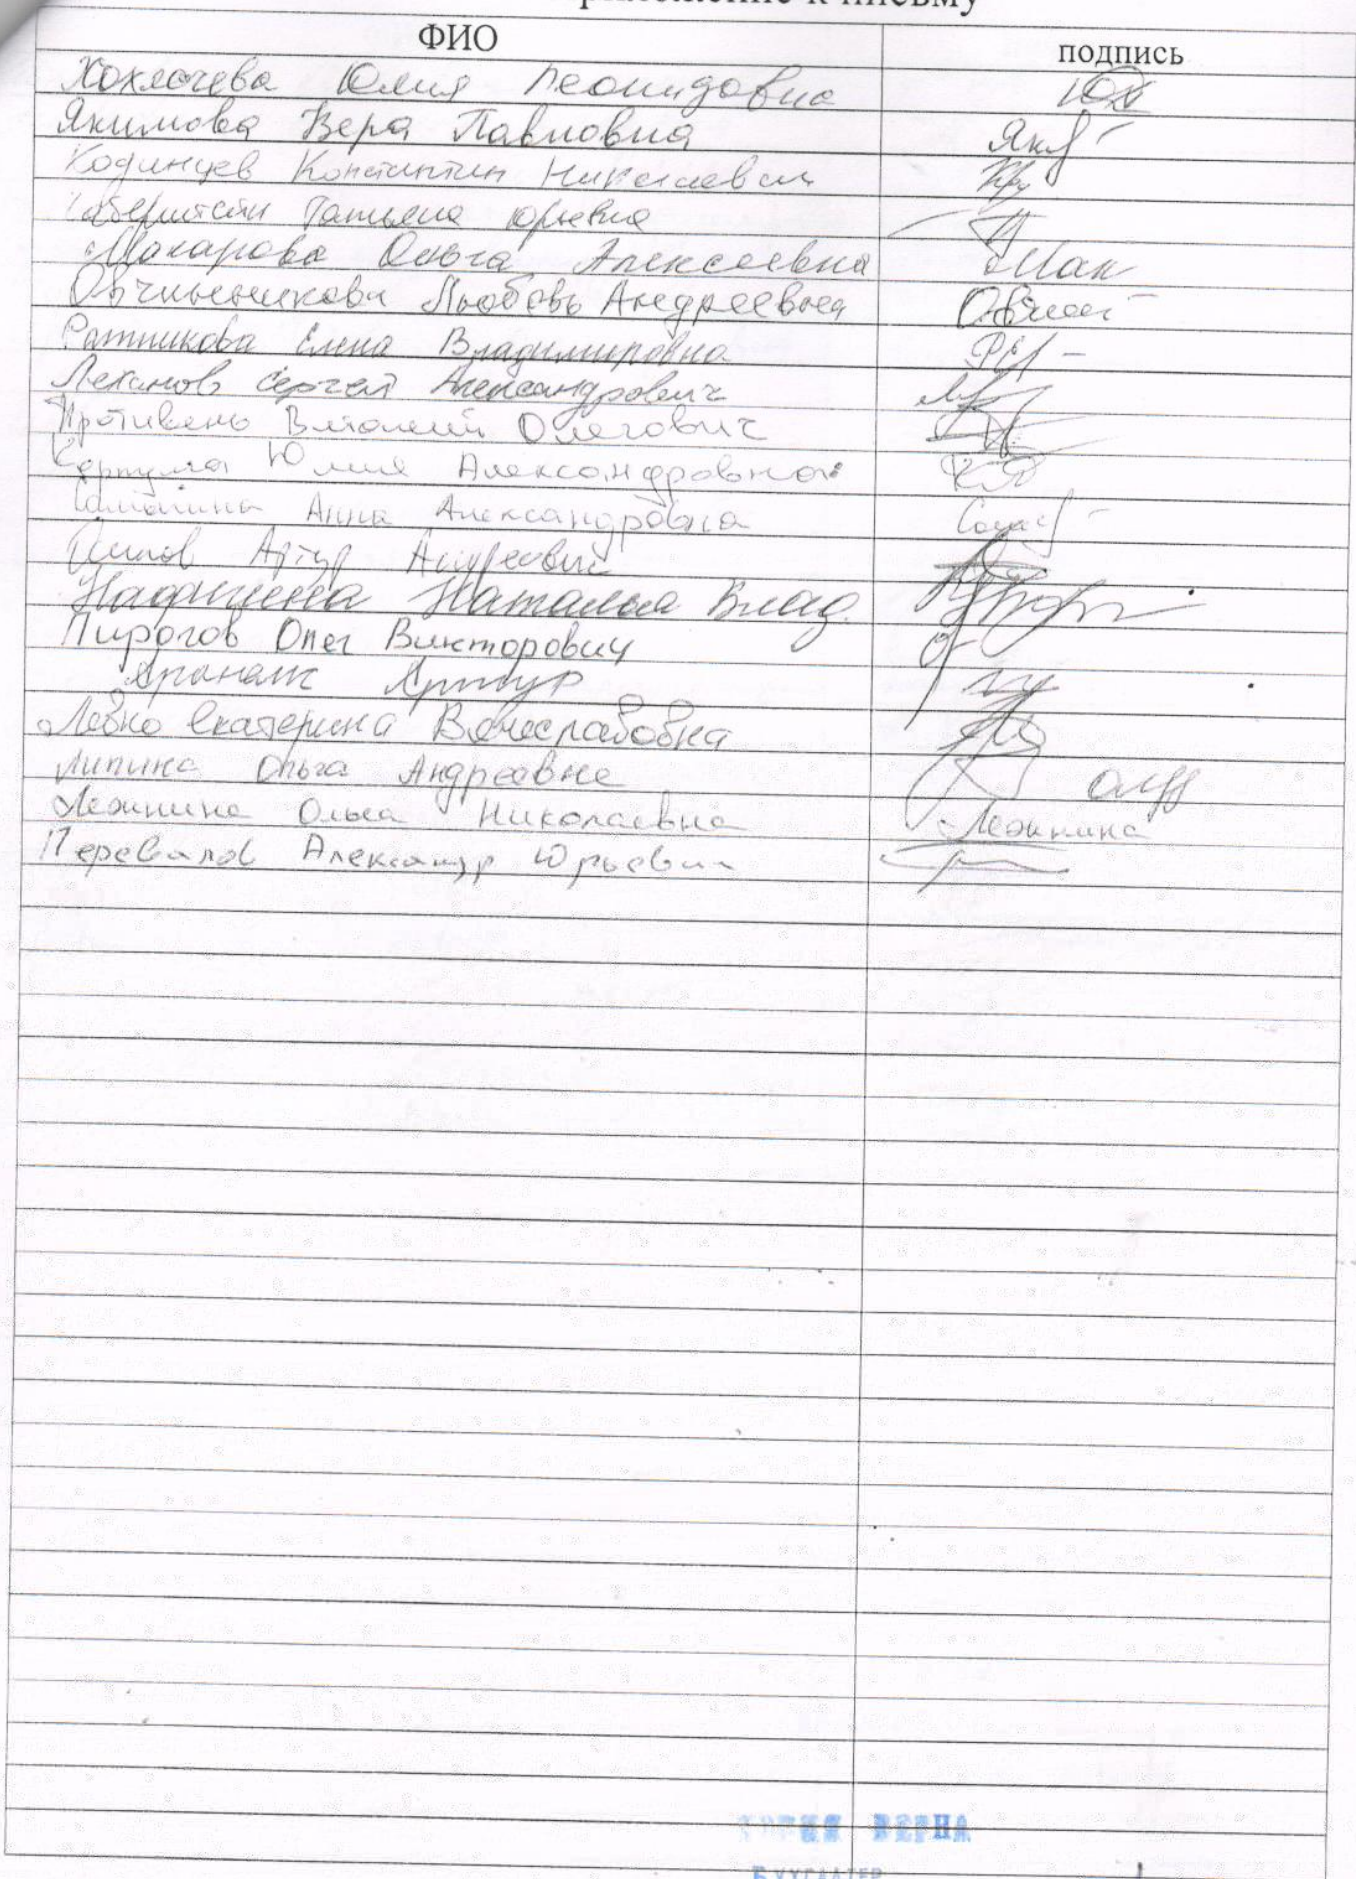 к письму
ФИО подпись
Юлия Леонидовна
Якимова Вера Павловна Як
Кодинцев Константин Николаевич
Татьяна Юрьевна
Макарова Ольга Алексеевна Мак
Овчинникова Любовь Андреевна
Ратникова Елена Владимировна
Леканов Сергей Александрович
Противень Виталий Олегович
Юлия Александровна
Анна Александровна
Артур Андреевич
Наталья Влад.
Пирогов Олег Викторович
Артур
Левко Екатерина Вячеславовна
Липина Ольга Андреевна
Лежнина Ольга Николаевна Лежнина
Перевалов Александр Юрьевич
ВЕРНА
БУХГАЛТЕР